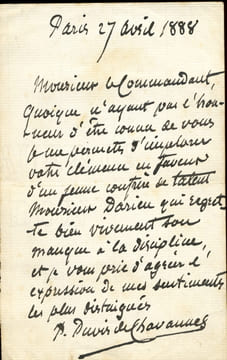 Paris 27 avril 1888
Monsieur le Commandant,
Quoique n'ayant pas l'hon-
neur d'être connu de vous
je me permets d'implorer
votre clémence en faveur
d'un jeune confrère de talent
Monsieur Darien qui regret-
te bien vivement son
manque à la discipline,
et je vous prie d'agréer l'
expression de mes sentiments
les plus distingués
P. Puvis de Chavannes